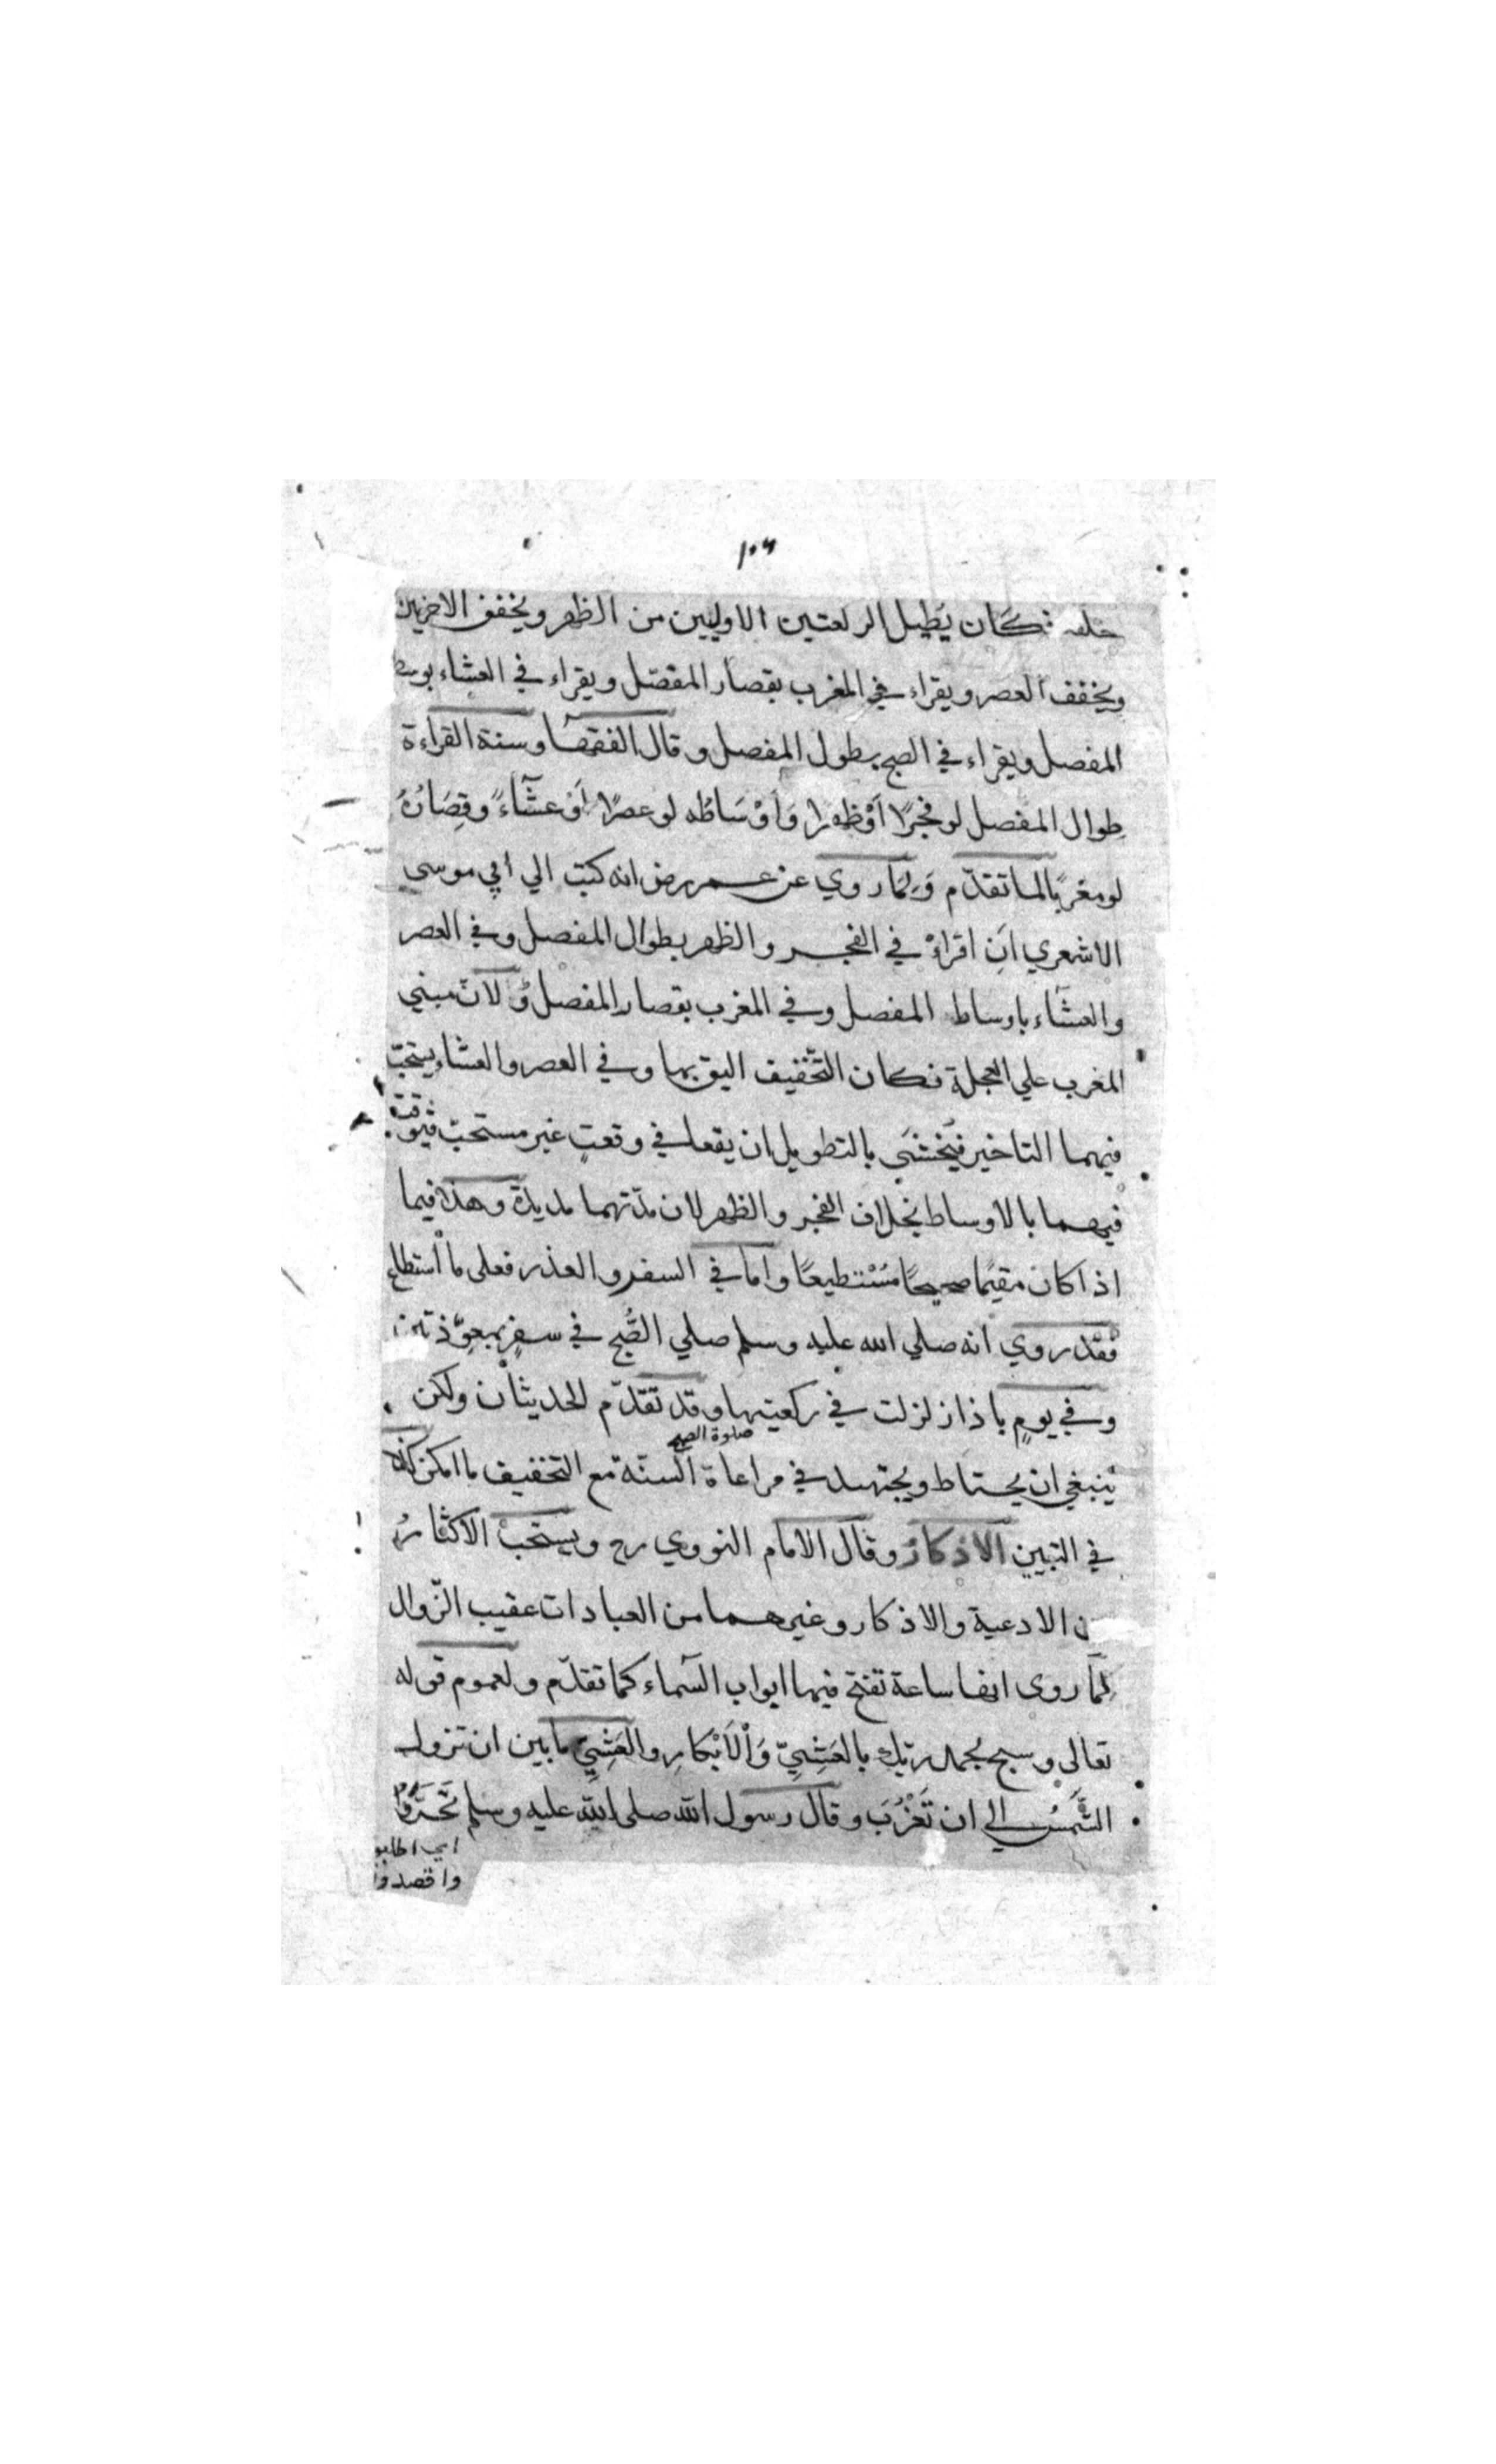 ١٠٦
خلفه فكان يُطيل الركعتين الاوليين من الظهر ويخفف الاخريين
ويخفف العصر ويقراء في المغرب بقصار المفصّل ويقراء في العشاء بوسط
المفصل ويقراء في الصبح بطول المفصل وقال الفقهآ وسنة القراءة
طِوال المفصل لو فجرًا اَوْ ظهرا وَاَوْسَاطُه لو عصرًا اَوْ عشآءً وقِصَارُهُ
لو مغربًا لما تقدّم وَلِمَا روي عن عمر رض انه كتب الي ابي موسي
الاشعري اَنِ اقراءْ في الفجر والظهر بطوال المفصل وفي العصر
والعشَاء باوساط المفصل وفي المغرب بقصار المفصل وَلانّ مبني
المغرب علي العجلة فكان التّخفيف اليق بها وفي العصر والعشاء يستحبّ
فيهما التاخير فيُخشَي بالتطويل ان يقعا في وقعتٍ غير مستحبّ فيُوقّت
فيهما بالاوساط بخلاف الفجر والظهر لان مدّتهما مديدة وهذا فيما
اذا كان مقيمًا صحيحًا مُسْتطيعًا واما في السفر والعذر فعلى ما استطاع
فقد روي انه صلي الله عليه وسلم صلي الصُّبح في سفرٍ بمعوّذتين
وفي يومٍ باذا زلزلت في ركعتيها وقد تقدّم الحديثان ولكن
صلوة الصبح
ينبغي ان يحتاط ويجتهد في مراعاة السنّة مع التخفيف ما امكن كذا
في التبيين الاذكار وقال الامام النووي رح ويستحبّ الاكثارُ
من الادعية والاذكار وغيرهما من العبادات عقيب الزّوال
لِمَا روى انها ساعة تفتح فيها ابواب السّماء كما تقدّم ولعموم قوله
تعالى وسبح بحمد ربّك بالعَشِيِّ وَالْاِبْكارِ والعَشِيّ ما بين ان تزول
الشّمسُ الي ان تَغْرُبَ وقال رسول الله صلى الله عليه وسلم تَحَرَّوْا
اي اطلبو
واقصدوا